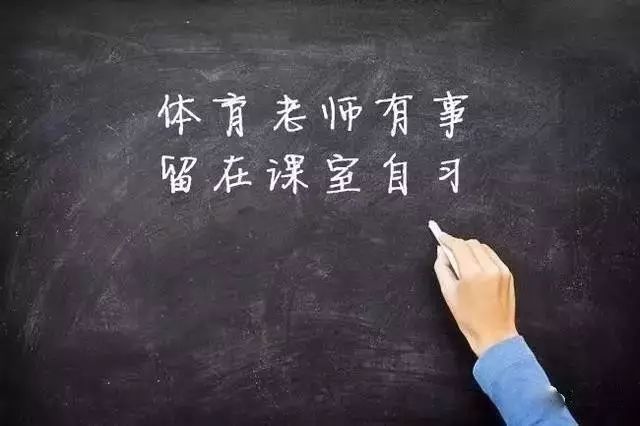 体育老师有事
留在课室自习